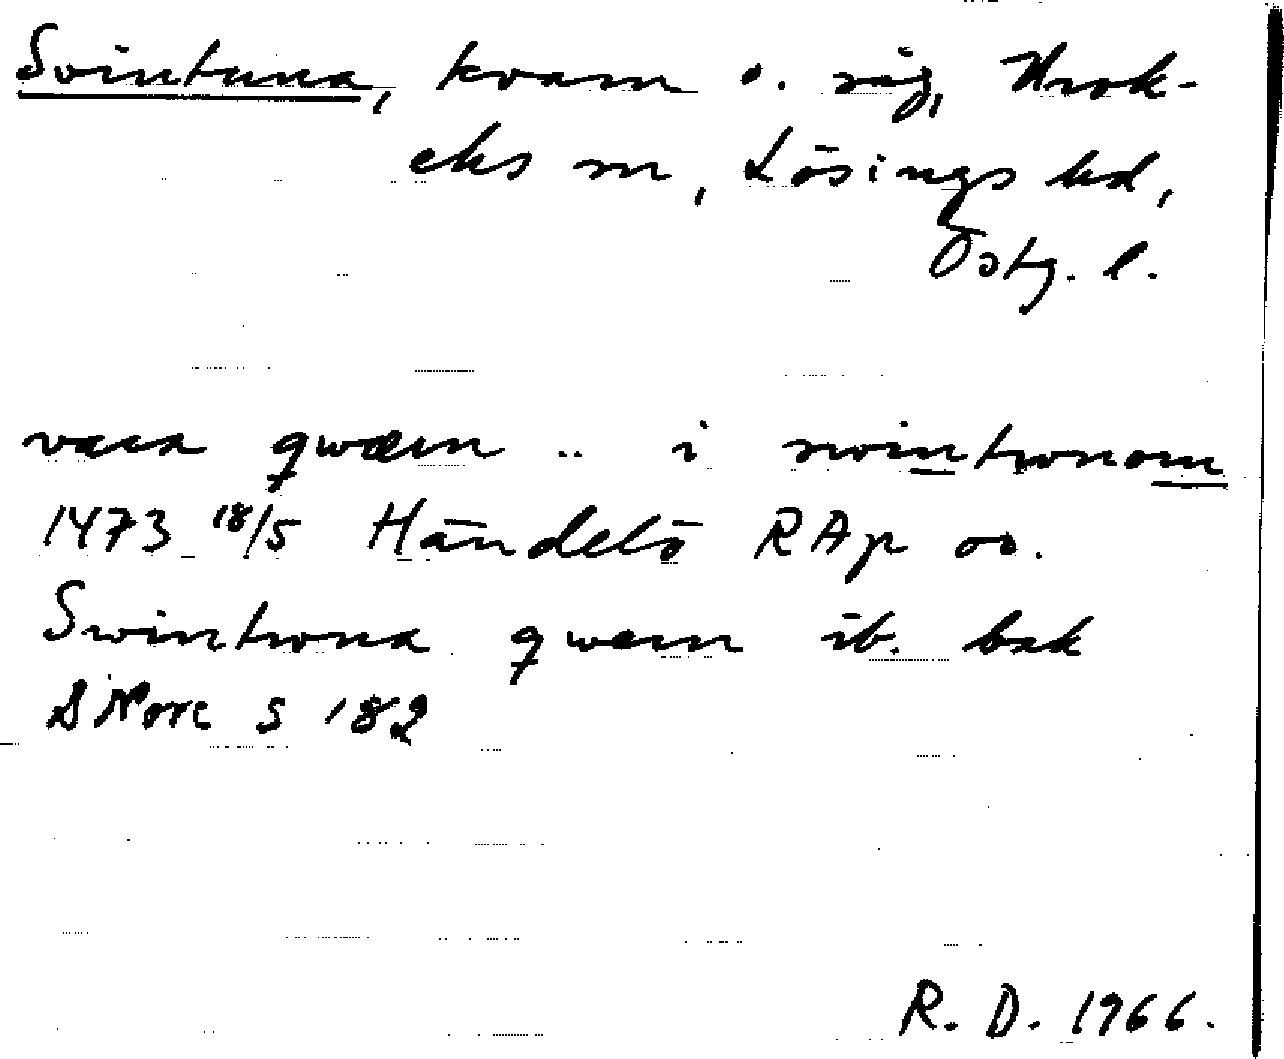 Svintuna, kvarn o. såg, Krok-
eks sn, Lösings hd,
Östg. l.
vara qwærn .. i swintwnom
1473 18/5 Händelö RAp or.
Swintwna qwern ib. bak
DMore s 182
R. D. 1966.